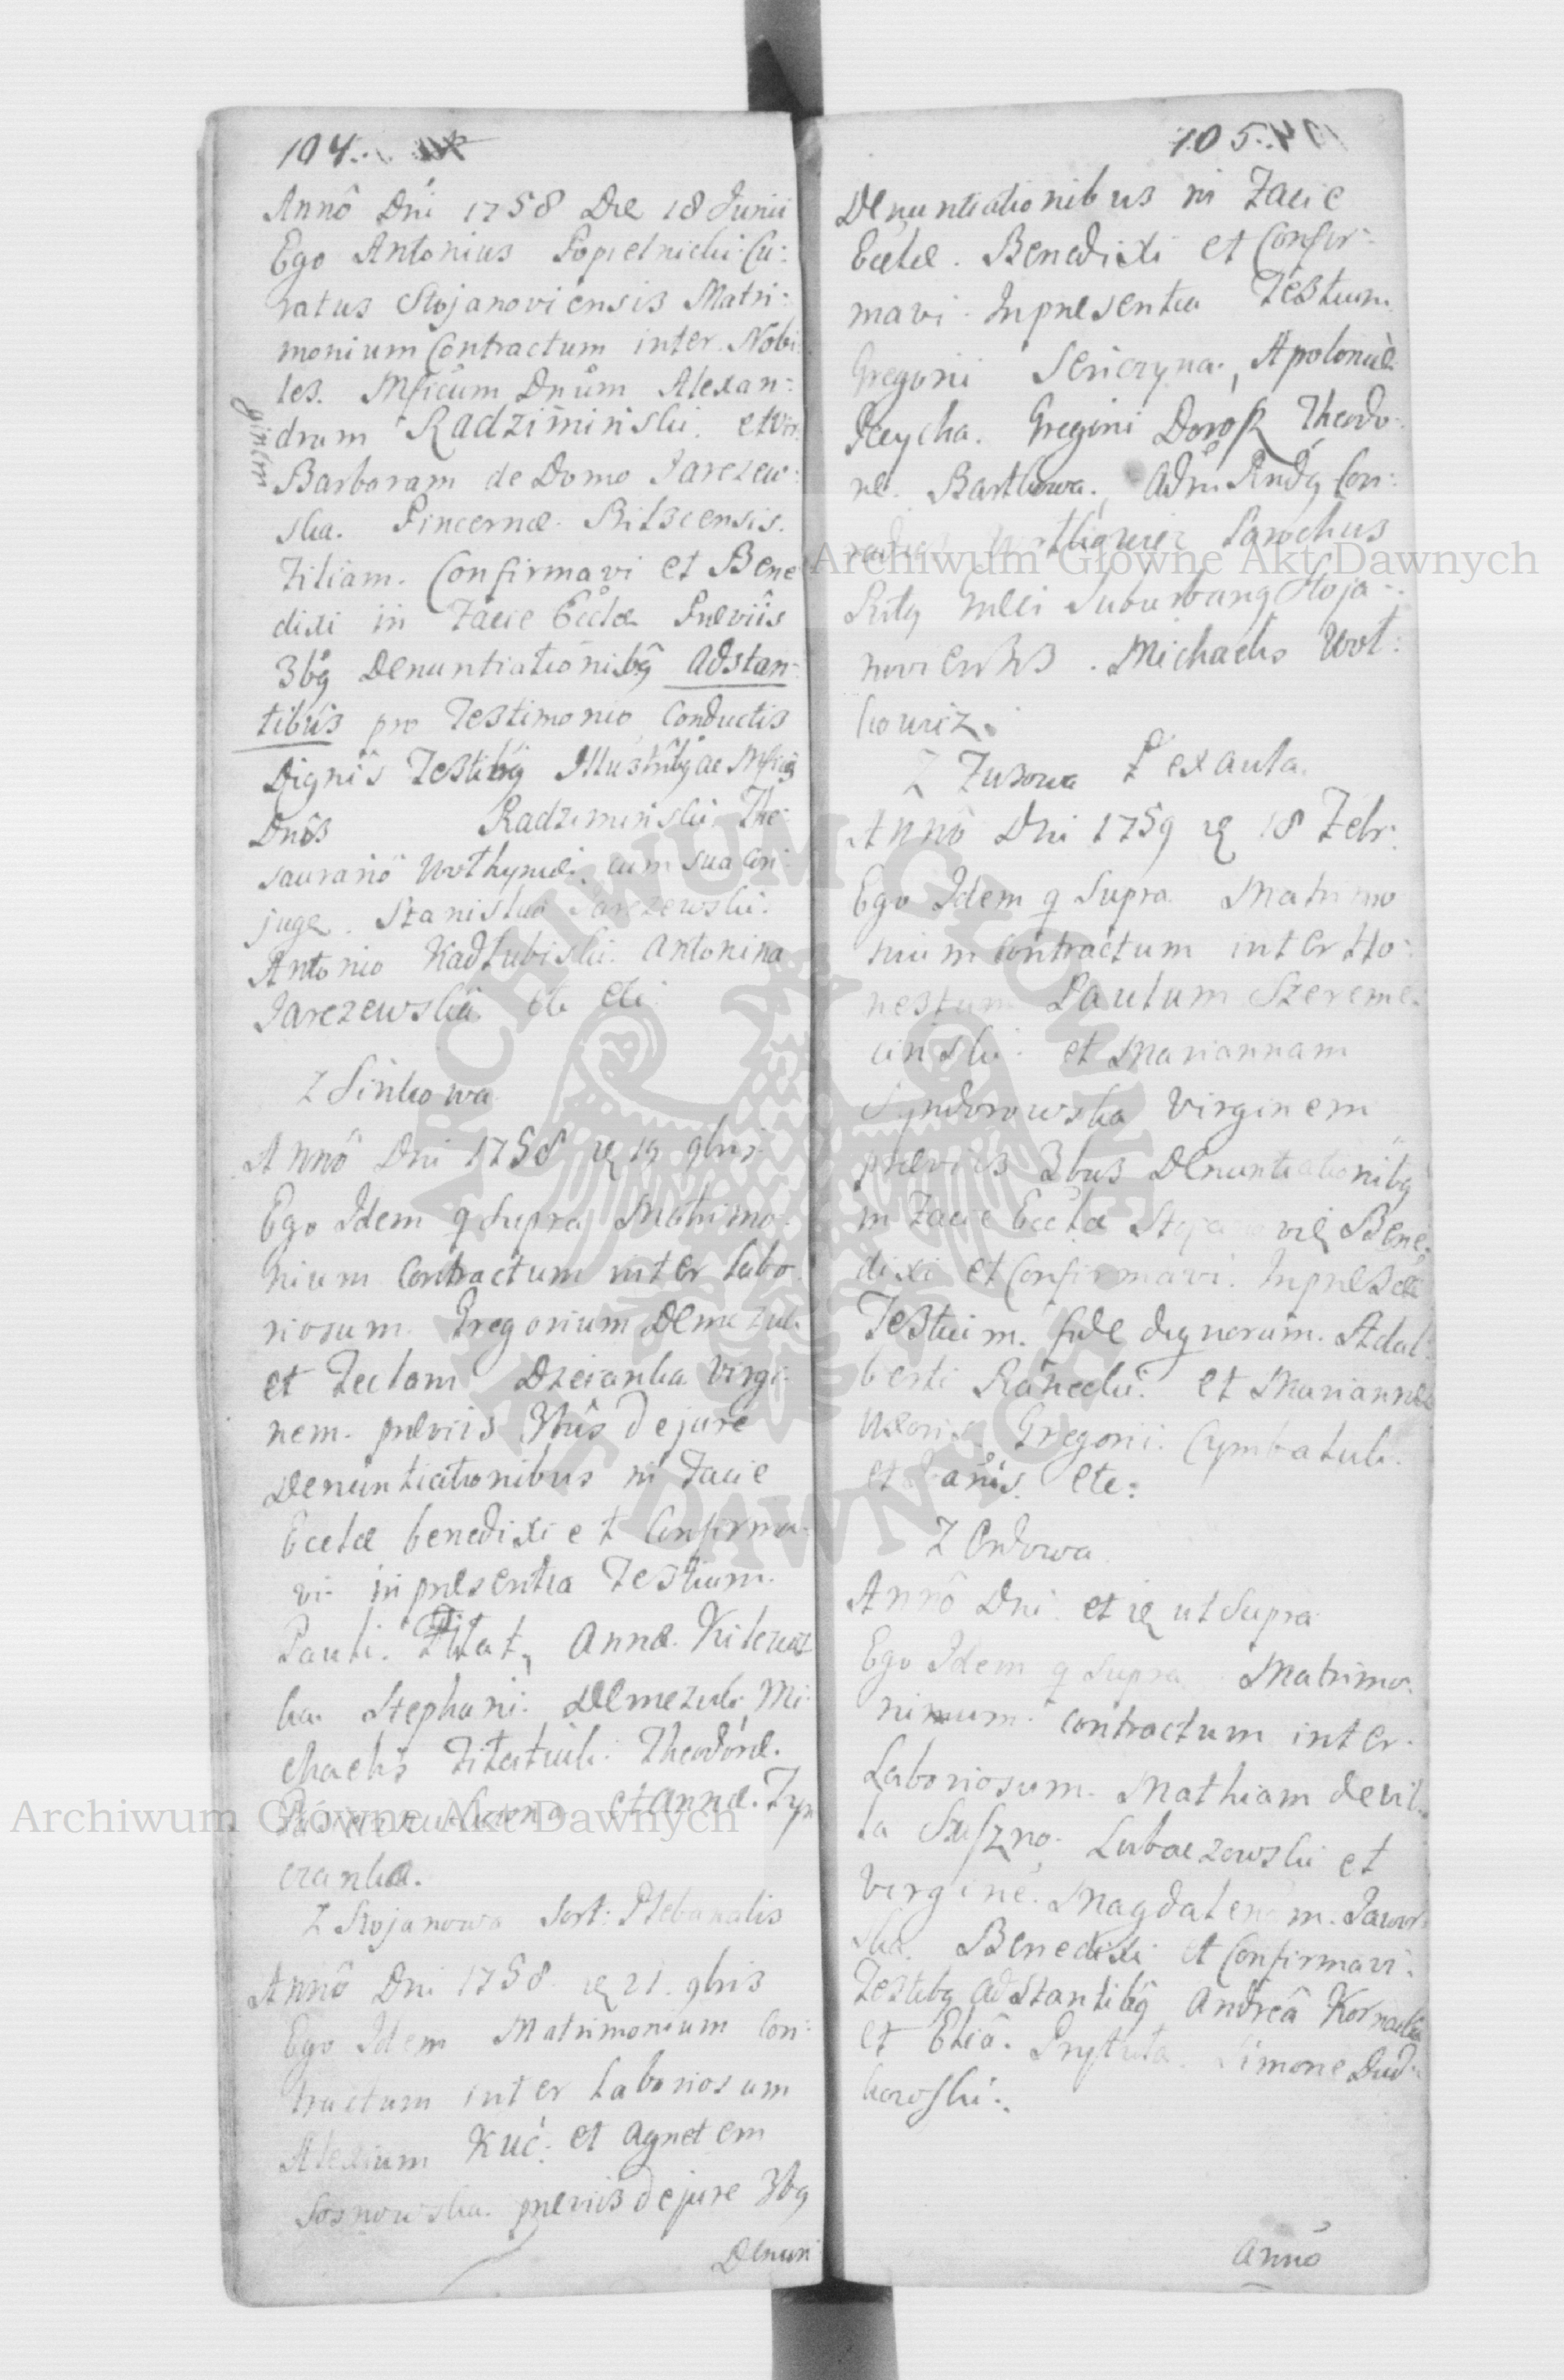 104.
Annô Dni 1758 Die 18 Junii
Ego Antonius Popielnicki Cu:
ratus Stojanoviensis Matri:
monium Contractum inter Nobi
les. Mficum Dnum Alexan:
drum Radziminski. et Vir
ginem
Barbaram de Domo Jarczew:
ska. Pincernæ
Filiam. Confirmavi et Bene
dixi in Facie Eccłæ Præviis
3bq Denuntiationibq Adstan:
tibus pro Testimonio Conductis
Dignis Testibq Illustribq ac Mficis
Dnis Radziminski The:
saurario Wołhyniæ cum sua Con:
juge. Stanislao Jarczewski.
Antonio Kadłubiski. Antonina
Jarczewska etc etc:
Z Sinkowa
Annô Dni 1758 19 9bris
Ego Idem q Supra Matrimo:
nium Contractum inter Labo
riosum. Gregorium Demczuk
et Teclam Dzeianka Virgi:
nem. præviis 3bus de jure
Denuntiationibus in Facie
Eccłæ benedixi et Confirma:
vi in præsentia Testium.
Pauli. Annæ.
ka. Stephani. Demczuk Mi:
chaelis Theodoræ.
et Annæ. Tyn
czanka.
Z Stojanowa Sort: Plebanalis
Annô Dni 1758. 21. 9bris
Ego Idem Matrimonium Con:
tractum inter Laboriosum
Alexium Kuć. et Agnetem
Sosnowska. præviis de jure 3bq
Denun
105.
Denuntiationibus in Facie
Eccłæ. Benedixi et Confir:
mavi. In præsentia Testium
Gregorii Apoloniæ
Gregorii Dorosz Theodo:
ræ. Bartkowa. Adm Rndq Con:
Parochus
Ritq Græci Suburbanq Stoja:
noviensis. Michaelis Woł:
kowicz.
Z Tuzowa
Annô Dni 1759 18 Febr:
Ego Idem q Supra Matrimo
nium Contractum inter Ho:
nestum Paulum Szereme:
cinski. et Mariannam
Syndorowska Virginem
præviis 3bus Denuntiationibq
in Facie Eccłæ Bene:
dixi et Confirmavi. In præsea
Testium. fide dignorum. Adal:
berti et Mariannæ
Uxoris Gregorii. Cymbaluk.
et etc:
Z Ordowa
Annô Dni. et ut Supra
Ego Idem q Supra Matrimo:
nium. contractum inter.
Laboriosum. Mathiam de vil:
la Suszno. Lubaczowski et
Virgine. Magdalenam. Jawor
ska. Benedixi et Confirmavi:
Testibq adstantibq Andreâ
et Eliâ. Prystuła. Simone Dud:
kowski:
Annô
Archiwum Główne Akt Dawnych
Archiwum Główne Akt Dawnych
ARCHIWUM GŁÓWNE AKT DAWNYCH